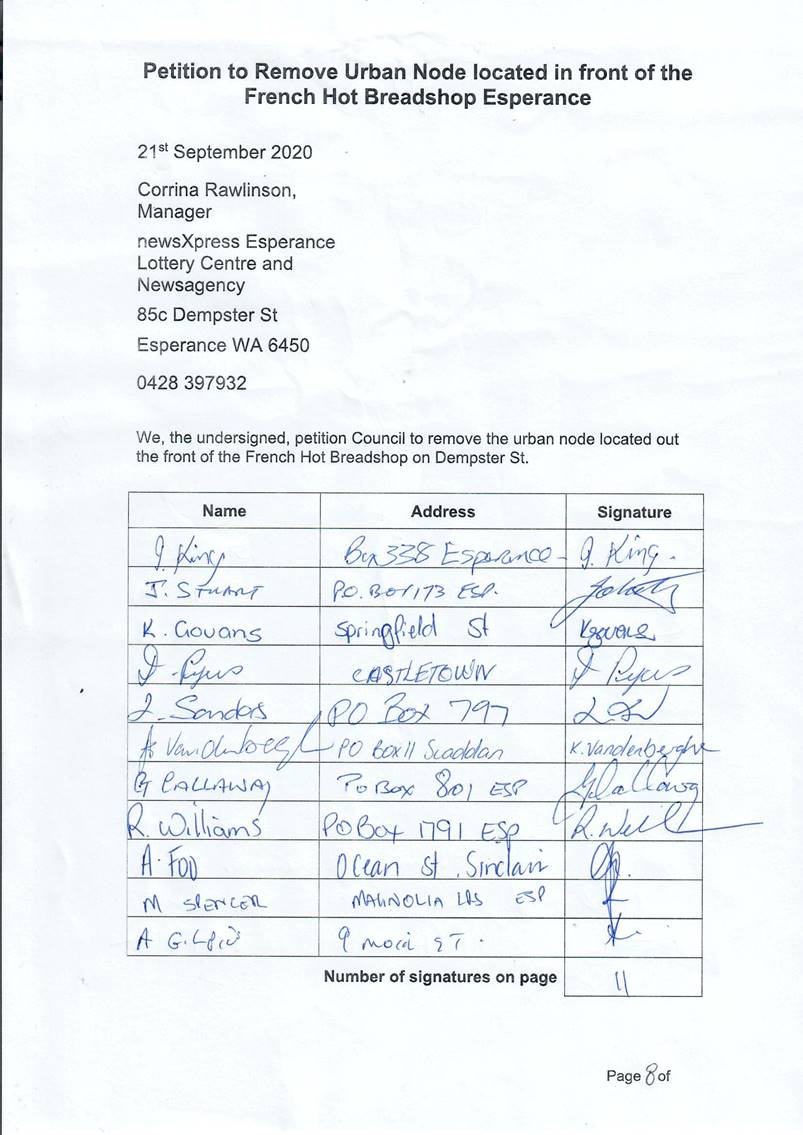 Petition to Remove Urban Node located in front of the
French Hot Breadshop Esperance
21st September 2020
Corrina Rawlinson,
Manager
newsXpress Esperance
Lottery Centre and
Newsagency
85c Dempster St
Esperance WA 6450
0428 397932
We, the undersigned, petition Council to remove the urban node located out
the front of the French Hot Breadshop on Dempster St.
Name Address Signature
J. King Box 338 Esperance - J. King.
J. STUART P.O. BOX 173 ESP.
K. Govans Springfield St Kgovans
Pyus CASTLETOWN Pyus
L. Sanders PO Box 797
K Vandenberghe PO Box 11 Scaddan K. Vandenberghe
G CALLAWAY PO Box 801 ESP G Callaway
R. Williams PO Box 1791 ESP R. Will
A. FOD Ocean St, Sinclair
M SPENCER MAGNOLIA ESP
A 9 ST.
Number of signatures on page 11
Page 8 of